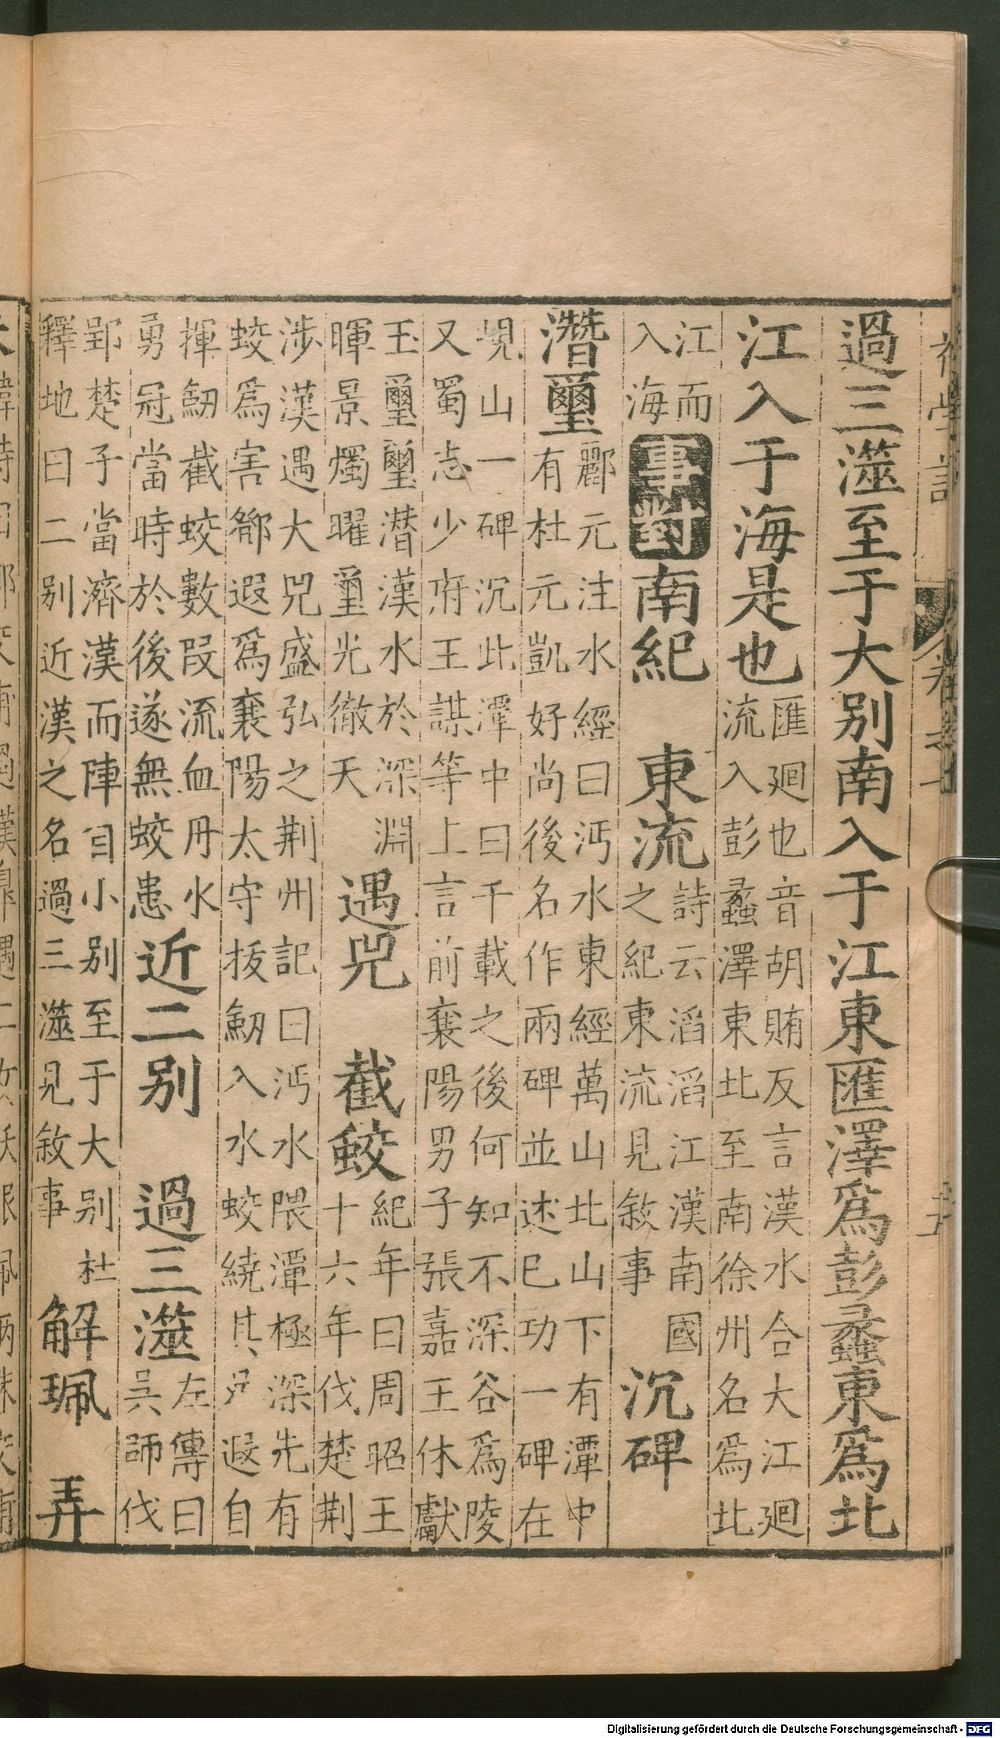 過三澨至于大别南入于江東匯澤為彭蠡東為北
江入于海是也匯廻也音胡賄反言漢水合大江廻
流入彭蠡澤東北至南徐州名為北
江而
入海事對南紀 東流詩云滔滔江漢南國
之紀東流見敘事沉碑
潛璽酈元注水經曰沔水東經萬山北山下有潭中
有杜元凱好尚後名作兩碑並述已功一碑在
峴山一碑沉此潭中曰千載之後何知不深谷為陵
又蜀志少府王謀等上言前襄陽男子張嘉王休獻
玉璽璽潛漢水於深淵
暉景燭曜璽光徹天遇兕 截蛟紀年曰周昭王
十六年伐楚荆
涉漢遇大兕盛弘之荆州記曰沔水隈潭極深先有
蛟為害鄒遐為襄陽太守拔劒入水蛟繞其足遐自
揮劒截蛟數段流血丹水
勇冠當時於後遂無蛟患近二别 過三澨左傳曰
吳師伐
郢楚子當濟漢而陣自小别至于大别杜
釋地曰二别近漢之名過三澨見敘事解珮 弄
Digitalisierung gefördert durch die Deutsche Forschungsgemeinschaft - DFG